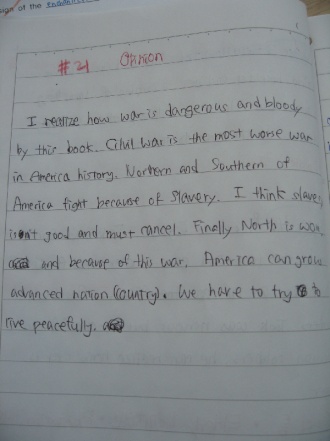 sign of the
#21 Opinion
I realize how war is dangerous and bloody
by this book. Civil war is the most worse war
in America history. Northern and Southern of
America fight because of slavery. I think slave
isn't good and must cancel. Finally North is won,
and because of this war, America can grow
advanced nation (country). We have to try to
live peacefully.